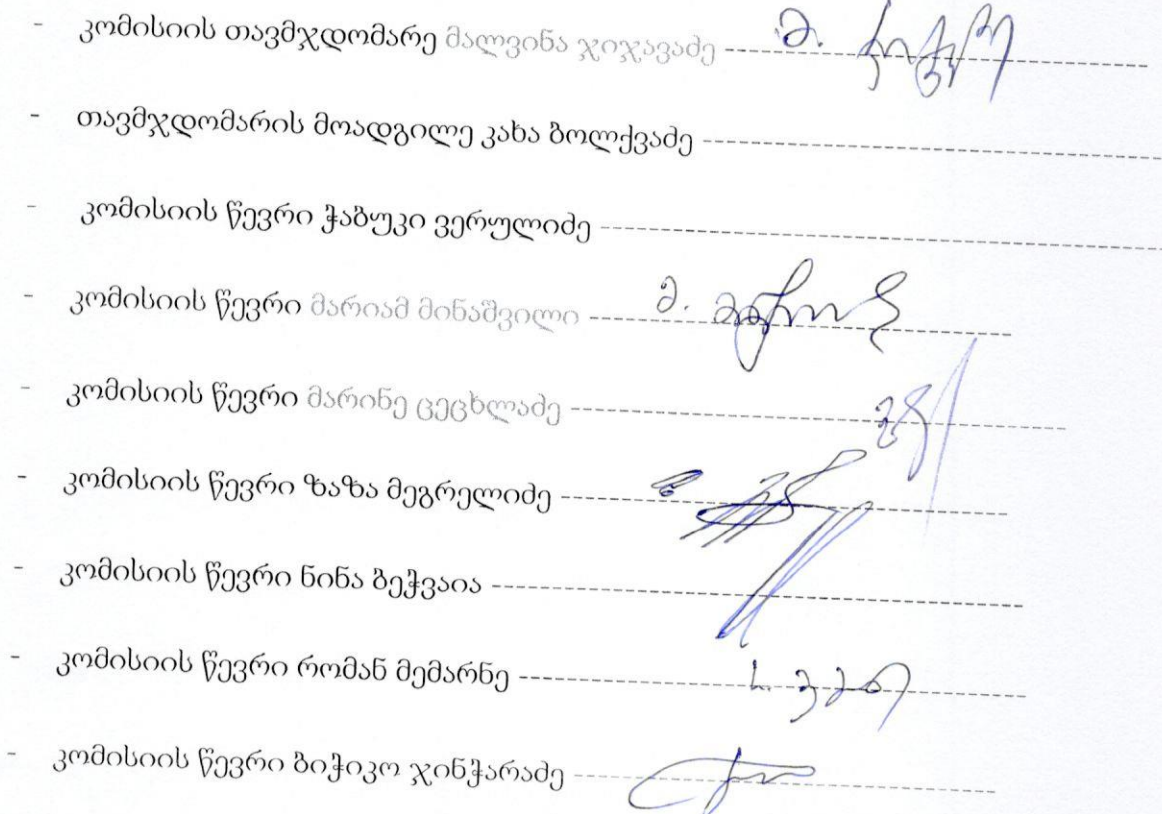 - კომისიის თავმჯდომარე მალვინა ჯიჯავაძე
- თავმჯდომარის მოადგილე კახა ბოლქვაძე
- კომისიის წევრი ჭაბუკი ვერულიძე
- კომისიის წევრი მარიამ მინაშვილი
- კომისიის წევრი მარინე ცეცხლაძე
- კომისიის წევრი ზაზა მეგრელიძე
- კომისიის წევრი ნინა ბეჭვაია
- კომისიის წევრი რომან მემარნე
- კომისიის წევრი ბიჭიკო ჯინჭარაძე